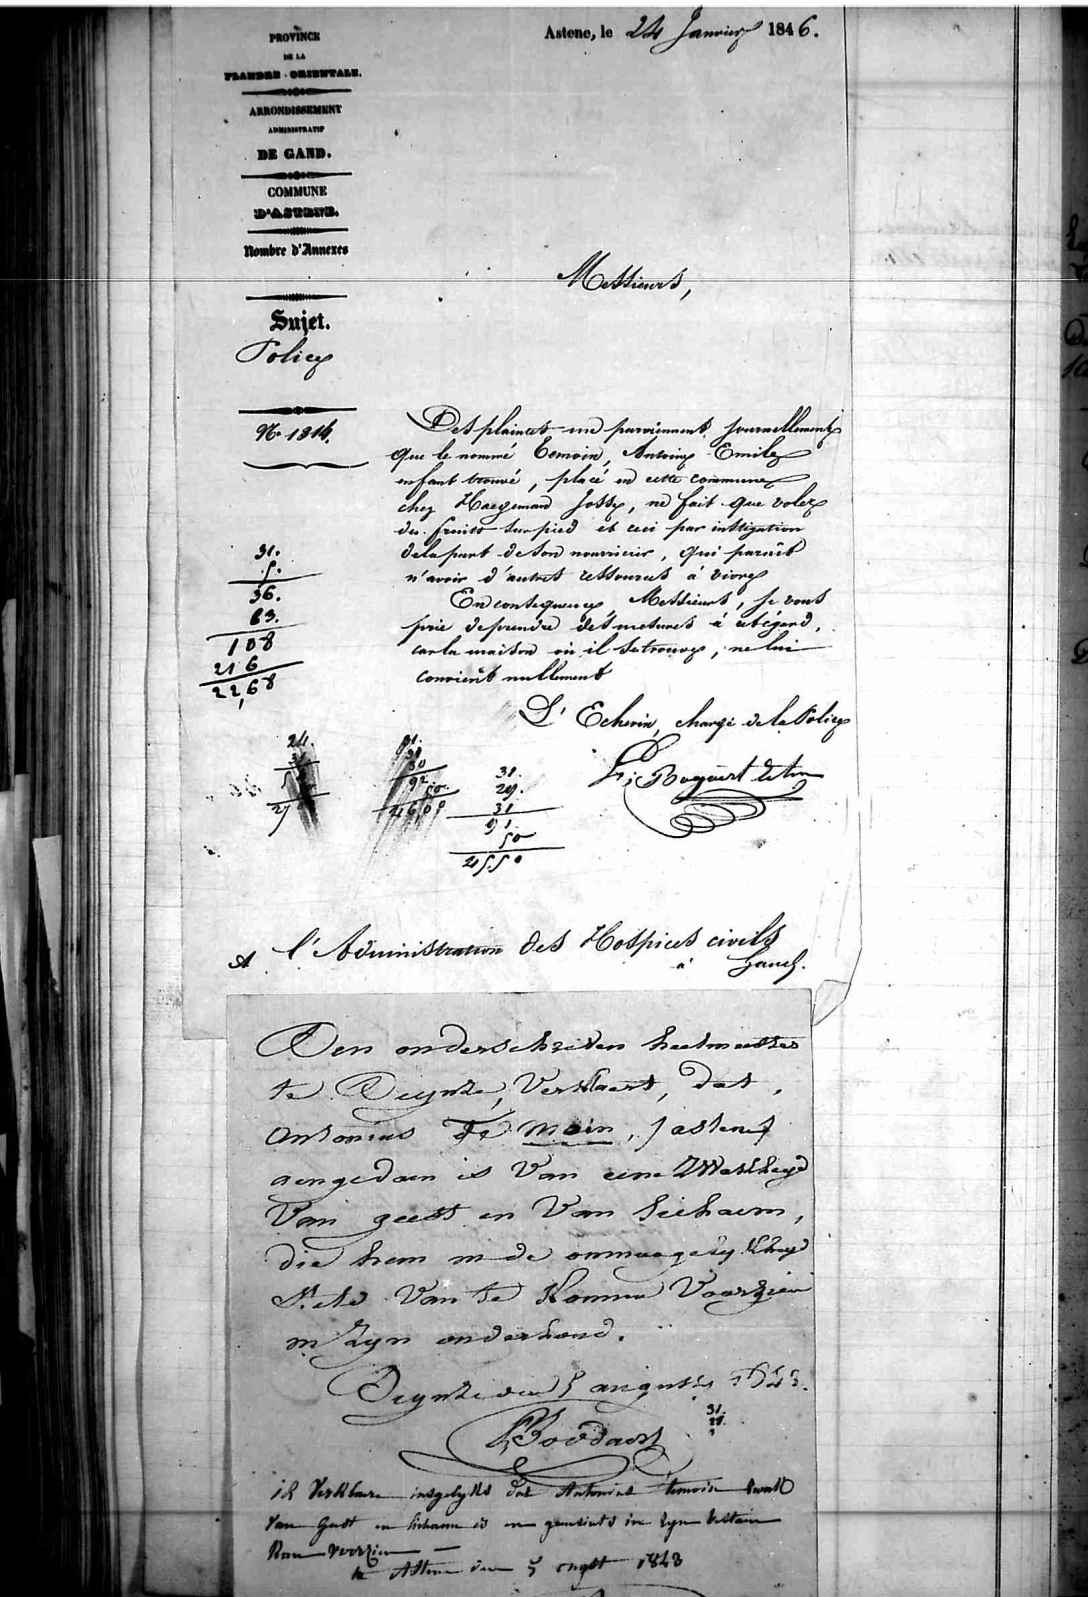 PROVINCE
DE LA
FLANDRE-ORIENTALE.
ARRONDISSEMENT
ADMINISTRATIF
DE GAND.
COMMUNE
D'ASTENE.
Nombre d'Annexes
Sujet.
Police
No 1314.
Astene, le 24 Janvier 1846.
Messieurs,
Des plaintes me parviennent journellement
que le nommé Temoin, Antoine Emile
enfant trouvé, placé en cette commune
chez Haegeman Josse, ne fait que voler
des fruits sur pied et ceci par instigation
de la part de son nourricier, qui paraît
n'avoir d'autres ressources à vivre
En conséquence, Messieurs, je vous
prie de prendre des mesures à cet égard,
car la maison où il se trouve, ne lui
convient nullement
L'Echevin, chargé de la Police
31.
5.
36.
63.
108
216
2268
31.
29.
31
91.
50
4550
A l'Administration des Hospices civils
à Gand.
Den onderschreven heelmeester
te Deynze, Verklaert, dat,
Antonius Te moin,
aengedaen is Van eene Zwakheyd
Van geest en Van lichaem,
die hem in de onmoogelykheyd
stelt Van te konnen Voorzien
in Zyn onderhoud.
Deynze den 5 augusty 1843.
31.
29.
ik Verklaere insgelyks dat Antonius temoin swak
Van Geest en lichaem is en geensints in zyn bestaen
kan voorzien
te Astene den 5 augst 1843